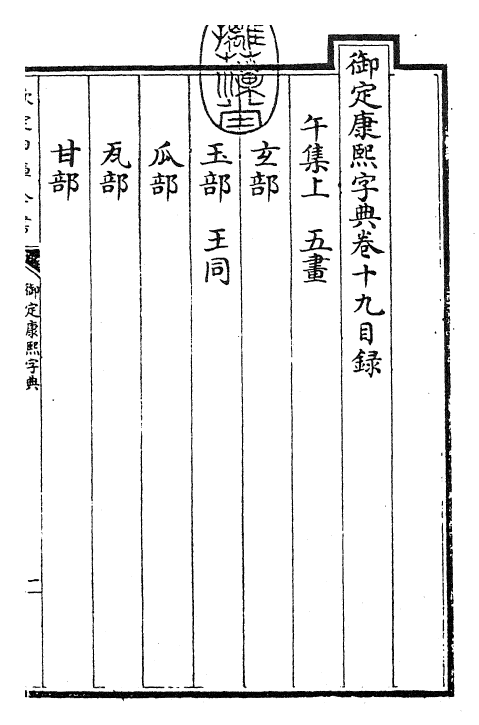 御定康熙字典卷十九目録
午集上　五畫
玄部
玉部　王同
瓜部
瓦部
甘部
御定康熙字典
二